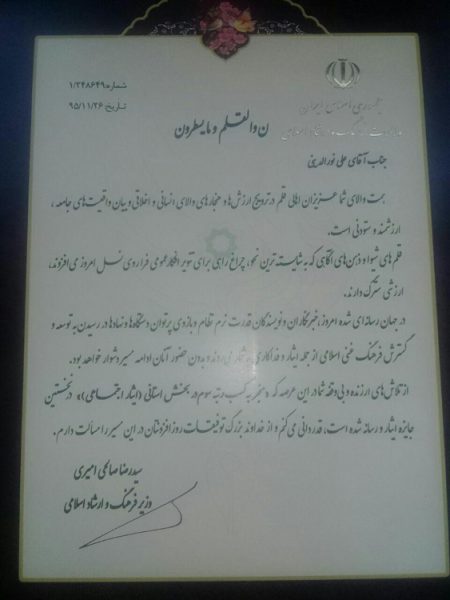 شماره ۱/۳۴۸۶۴۹
تاریخ ۹۵/۱۱/۲۶
جمهوری اسلامی ایران
وزارت فرهنگ و ارشاد اسلامی
ن والقلم و ما یسطرون
جناب آقای علی نورالدینی
همت والای شما عزیزان اهالی قلم در ترویج ارزش‌ها و هنجارهای والای انسانی و اخلاقی و بیان واقعیت‌های جامعه،
ارزشمند و ستودنی است.
قلم‌های شیوا و ذهن‌های آگاهی که به شایسته‌ترین نحو، چراغ راهی برای تنویر افکار عمومی فراروی نسل امروز می‌افروزند،
ارزشی سترگ دارند.
در جهان رسانه‌ای شده امروز، خبرنگاران و نویسندگان قدرت نرم نظام و بازوی پرتوان دستگاه‌ها و نهادها در رسیدن به توسعه و
گسترش فرهنگ غنی اسلامی از جمله ایثار و فداکاری به شمار می‌روند و بدون حضور آنان ادامه مسیر دشوار خواهد بود.
از تلاش‌های ارزنده و بی‌وقفه شما در این عرصه که منجر به کسب رتبه سوم در بخش استانی (ایثار اجتماعی)» در نخستین
جایزه ایثار و رسانه شده است، قدردانی می‌کنم و از خداوند بزرگ توفیقات روزافزونتان در این مسیر را مسألت دارم.
سیدرضا صالحی امیری
وزیر فرهنگ و ارشاد اسلامی